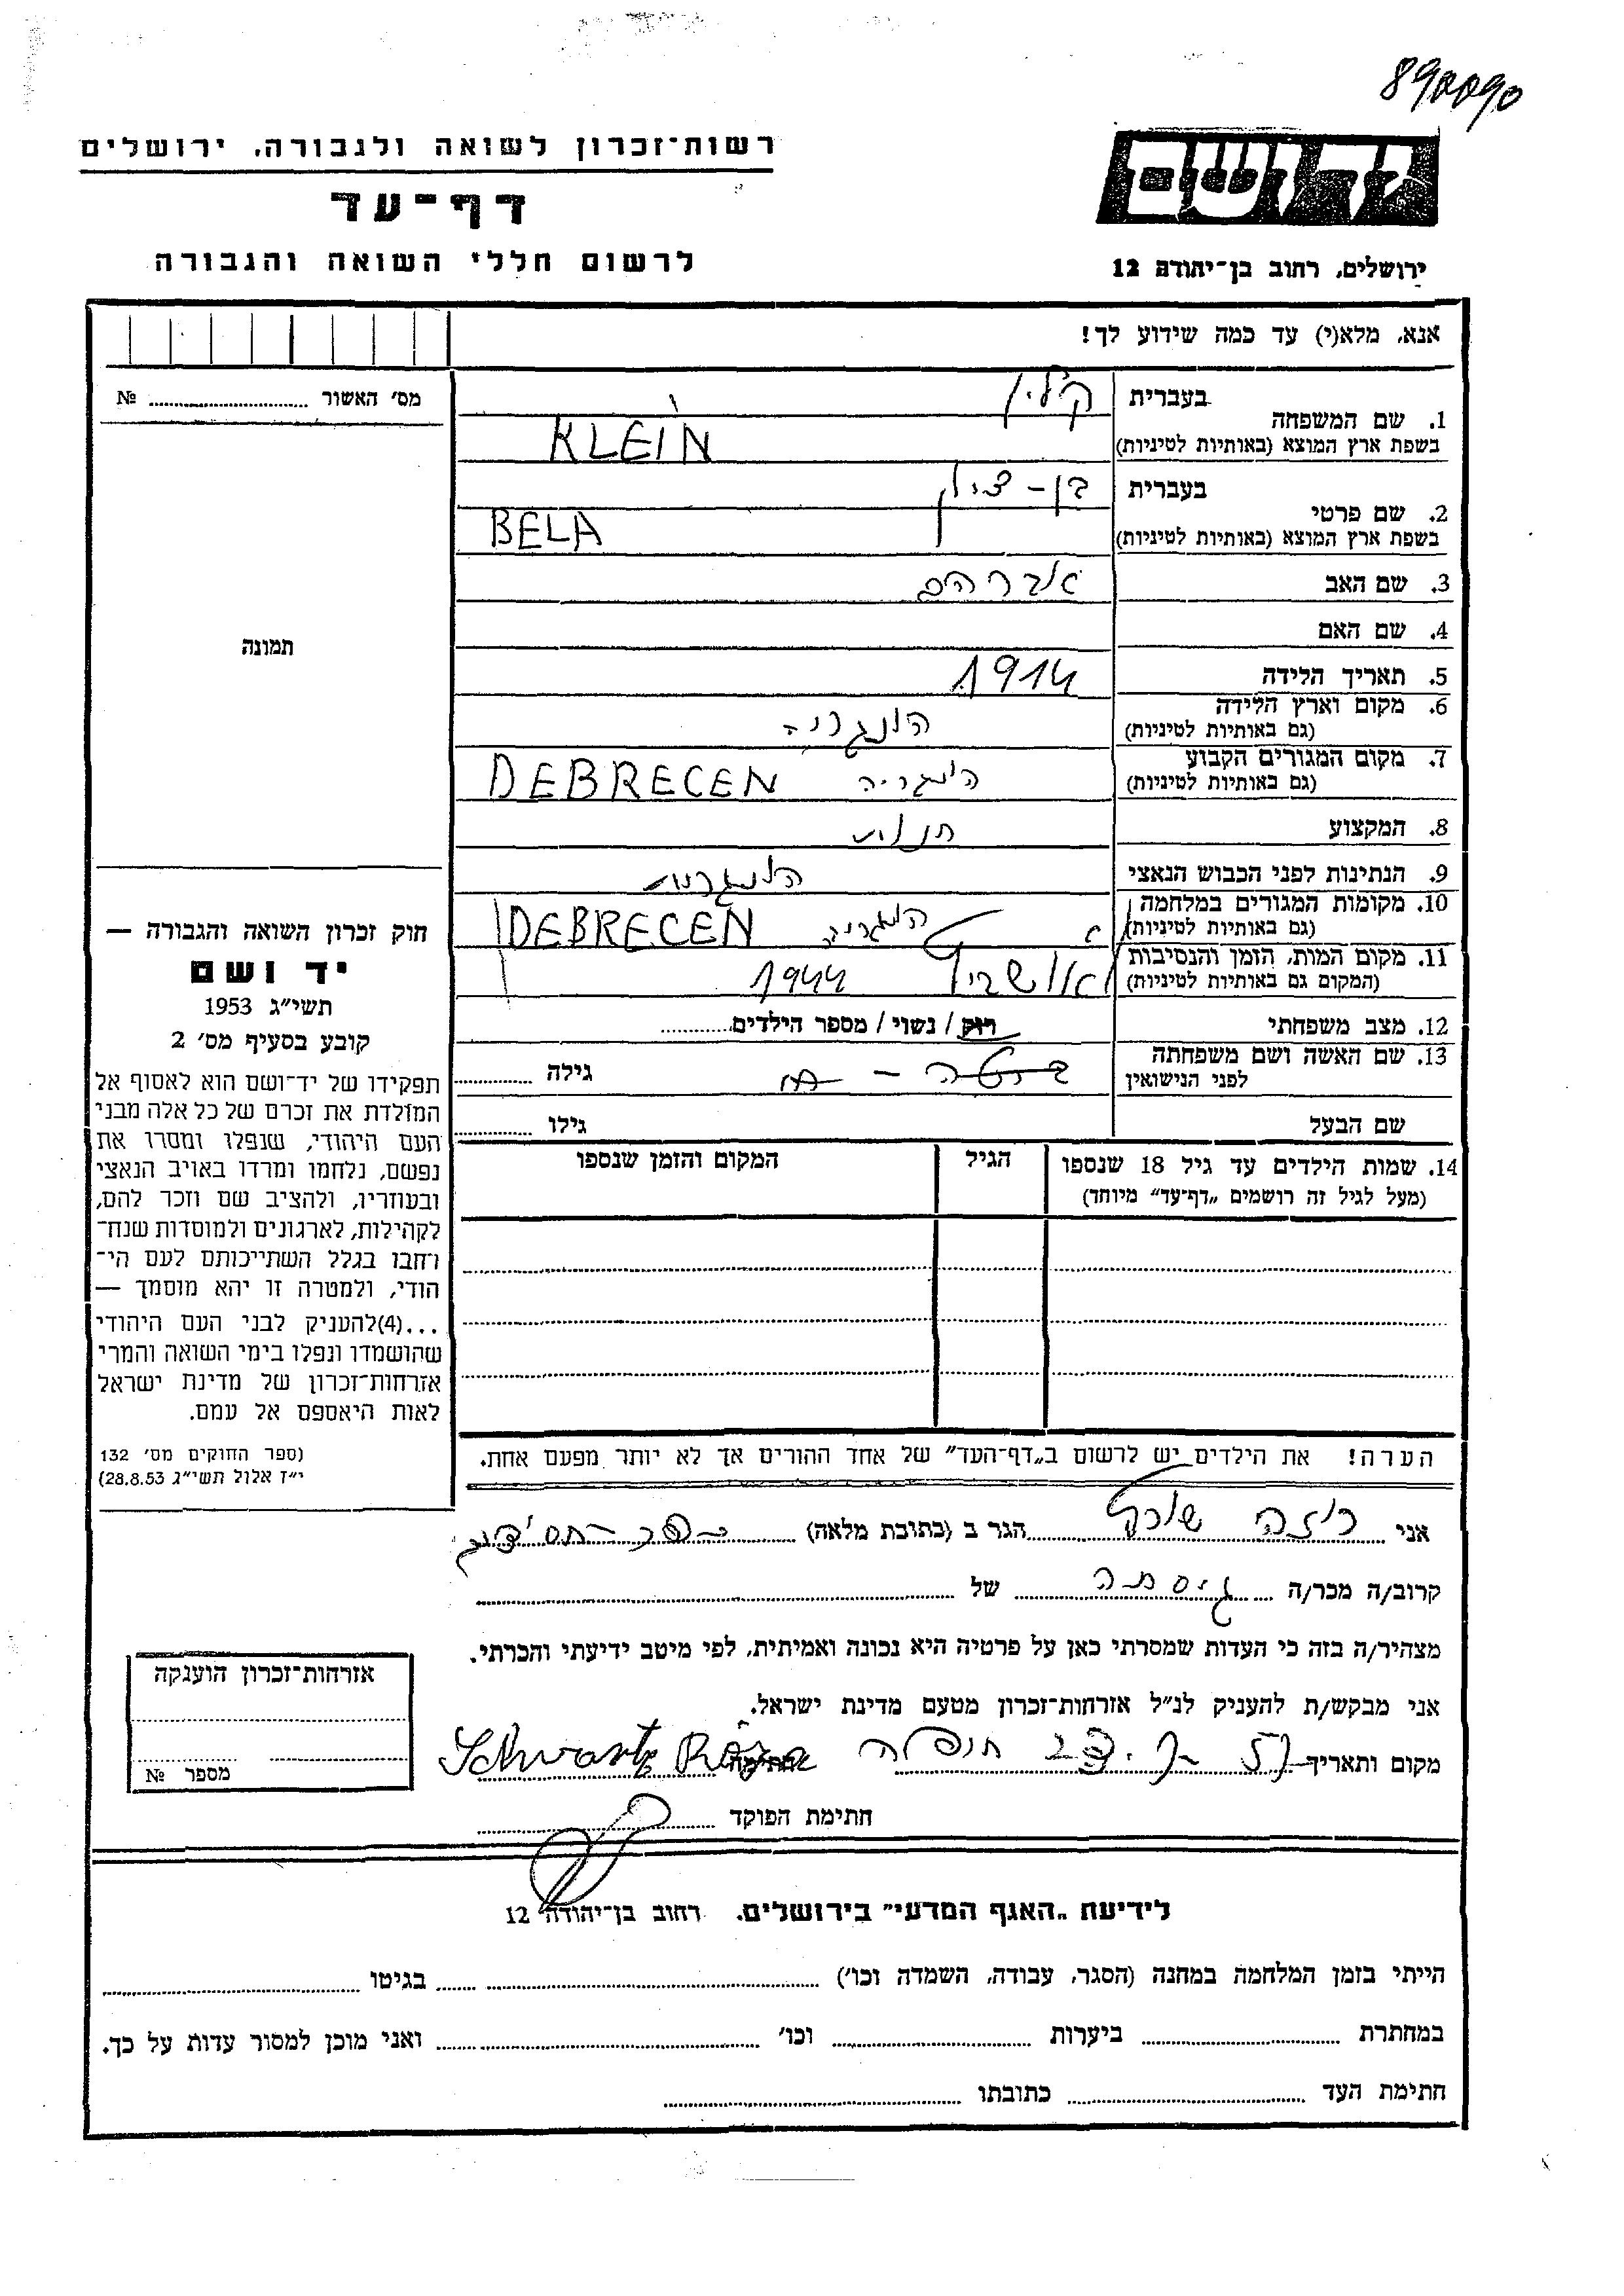 890090
רשות־זכרון לשואה ולגבורה. ירושלים
דף־עד
לרשום חללי השואה והגבורה
יד ושם
ירושלים, רחוב בן־יהודה 12
אנא, מלא(י) עד כמה שידוע לך!
מס׳ האשור № ........
תמונה
1. שם המשפחה
בעברית קליין
בשפת ארץ המוצא (באותיות לטיניות) KLEIN
2. שם פרטי
בעברית בן־ציון
בשפת ארץ המוצא (באותיות לטיניות) BELA
3. שם האב אברהם
4. שם האם
5. תאריך הלידה 1914
6. מקום וארץ הלידה
(גם באותיות לטיניות) הונגריה
7. מקום המגורים הקבוע
(גם באותיות לטיניות) הונגריה DEBRECEN
8. המקצוע
9. הנתינות לפני הכבוש הנאצי הונגרית
10. מקומות המגורים במלחמה
(גם באותיות לטיניות) הונגריה DEBRECEN
11. מקום המות, הזמן והנסיבות
(המקום גם באותיות לטיניות) אושביץ 1944
12. מצב משפחתי רווק / נשוי / מספר הילדים........
13. שם האשה ושם משפחתה
לפני הנישואין גילה ........
שם הבעל גילו ........
14. שמות הילדים עד גיל 18 שנספו
(מעל לגיל זה רושמים „דף־עד״ מיוחד)
הגיל
המקום והזמן שנספו
הערה! את הילדים יש לרשום ב„דף־העד״ של אחד ההורים אך לא יותר מפעם אחת.
חוק זכרון השואה והגבורה —
יד ושם
תשי״ג 1953
קובע בסעיף מס׳ 2
תפקידו של יד־ושם הוא לאסוף אל
המולדת את זכרם של כל אלה מבני
העם היהודי, שנפלו ומסרו את
נפשם, נלחמו ומרדו באויב הנאצי
ובעוזריו, ולהציב שם וזכר להם,
לקהילות, לארגונים ולמוסדות שנח־
רחבו בגלל השתייכותם לעם הי־
הודי, ולמטרה זו יהא מוסמך —
...(4)להעניק לבני העם היהודי
שהושמדו ונפלו בימי השואה והמרי
אזרחות־זכרון של מדינת ישראל
לאות היאספם אל עמם.
(ספר החוקים מס׳ 132
י״ז אלול תשי״ג 28.8.53)
אני רוזה שורץ הגר ב (כתובת מלאה) כפר־חסידים
קרוב/ה מכר/ה גיסתה של ........
מצהיר/ה בזה כי העדות שמסרתי כאן על פרטיה היא נכונה ואמיתית, לפי מיטב ידיעתי והכרתי.
אני מבקש/ת להעניק לנ״ל אזרחות־זכרון מטעם מדינת ישראל.
מקום ותאריך חתימה Schwartz Róza
חתימת הפוקד ........
אזרחות־זכרון הוענקה
מספר №
לידיעת „האגף המדעי״ בירושלים. רחוב בן־יהודה 12
הייתי בזמן המלחמה במחנה (הסגר, עבודה, השמדה וכו׳) ........ בגיטו ........
במחתרת ........ ביערות ........ וכו׳ ........ ואני מוכן למסור עדות על כך.
חתימת העד ........ כתובתו ........